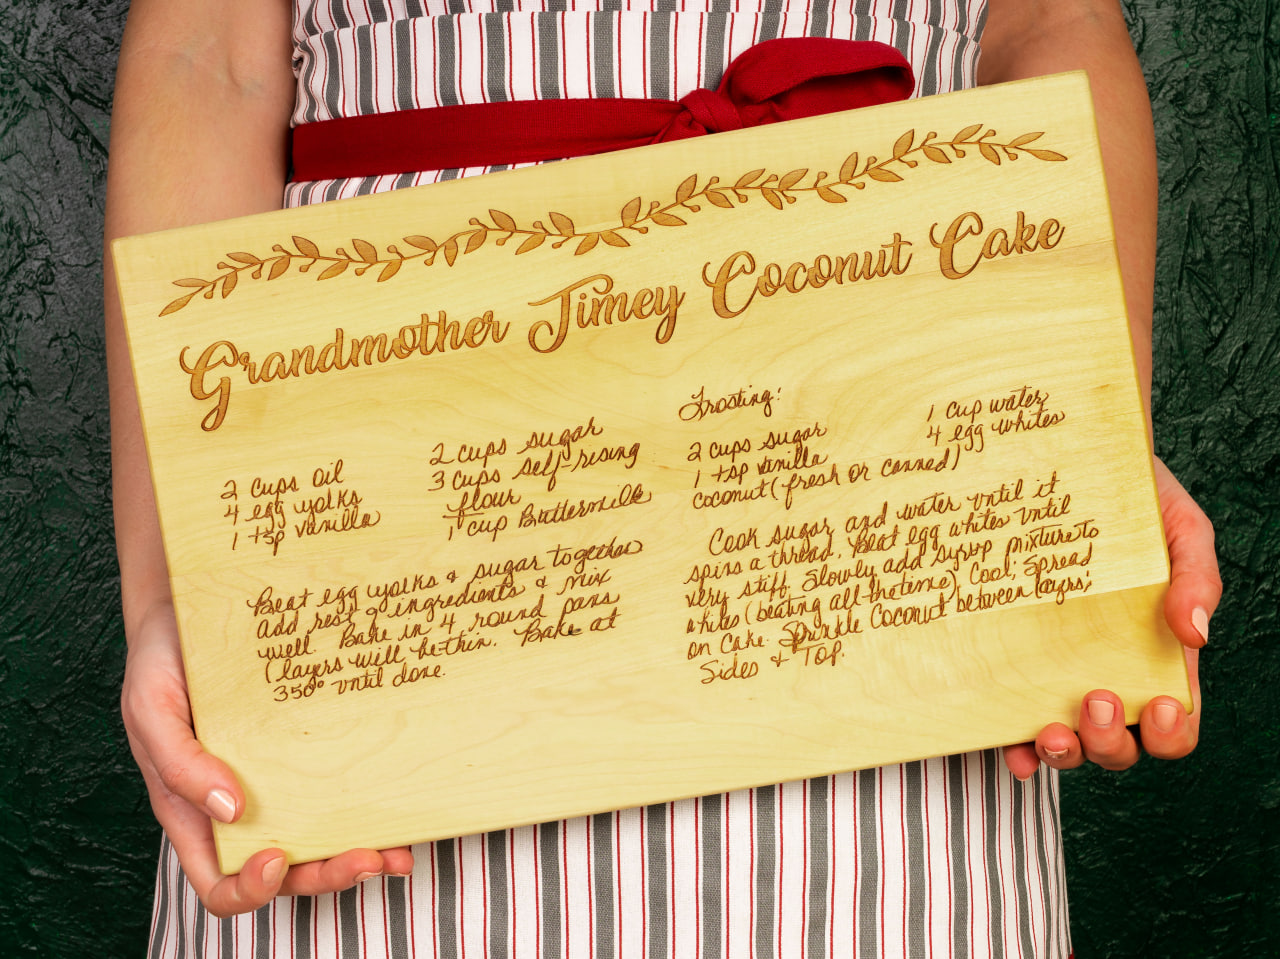 Grandmother Jimey Coconut Cake
2 cups oil
4 egg yolks
1 tsp vanilla
2 cups sugar
3 cups self-rising
flour
1 cup Buttermilk
Beat egg yolks & sugar together
add rest of ingredients & mix
well. Bake in 4 round pans
(layers will be thin. Bake at
350° until done.
Frosting:
2 cups sugar
1 tsp vanilla
coconut (fresh or canned)
1 cup water
4 egg whites
Cook sugar and water until it
spins a thread. Beat egg whites until
very stiff. Slowly add syrup mixture to
whites (beating all the time) Cool; Spread
on Cake. Sprinkle Coconut between layers;
Sides & Top.